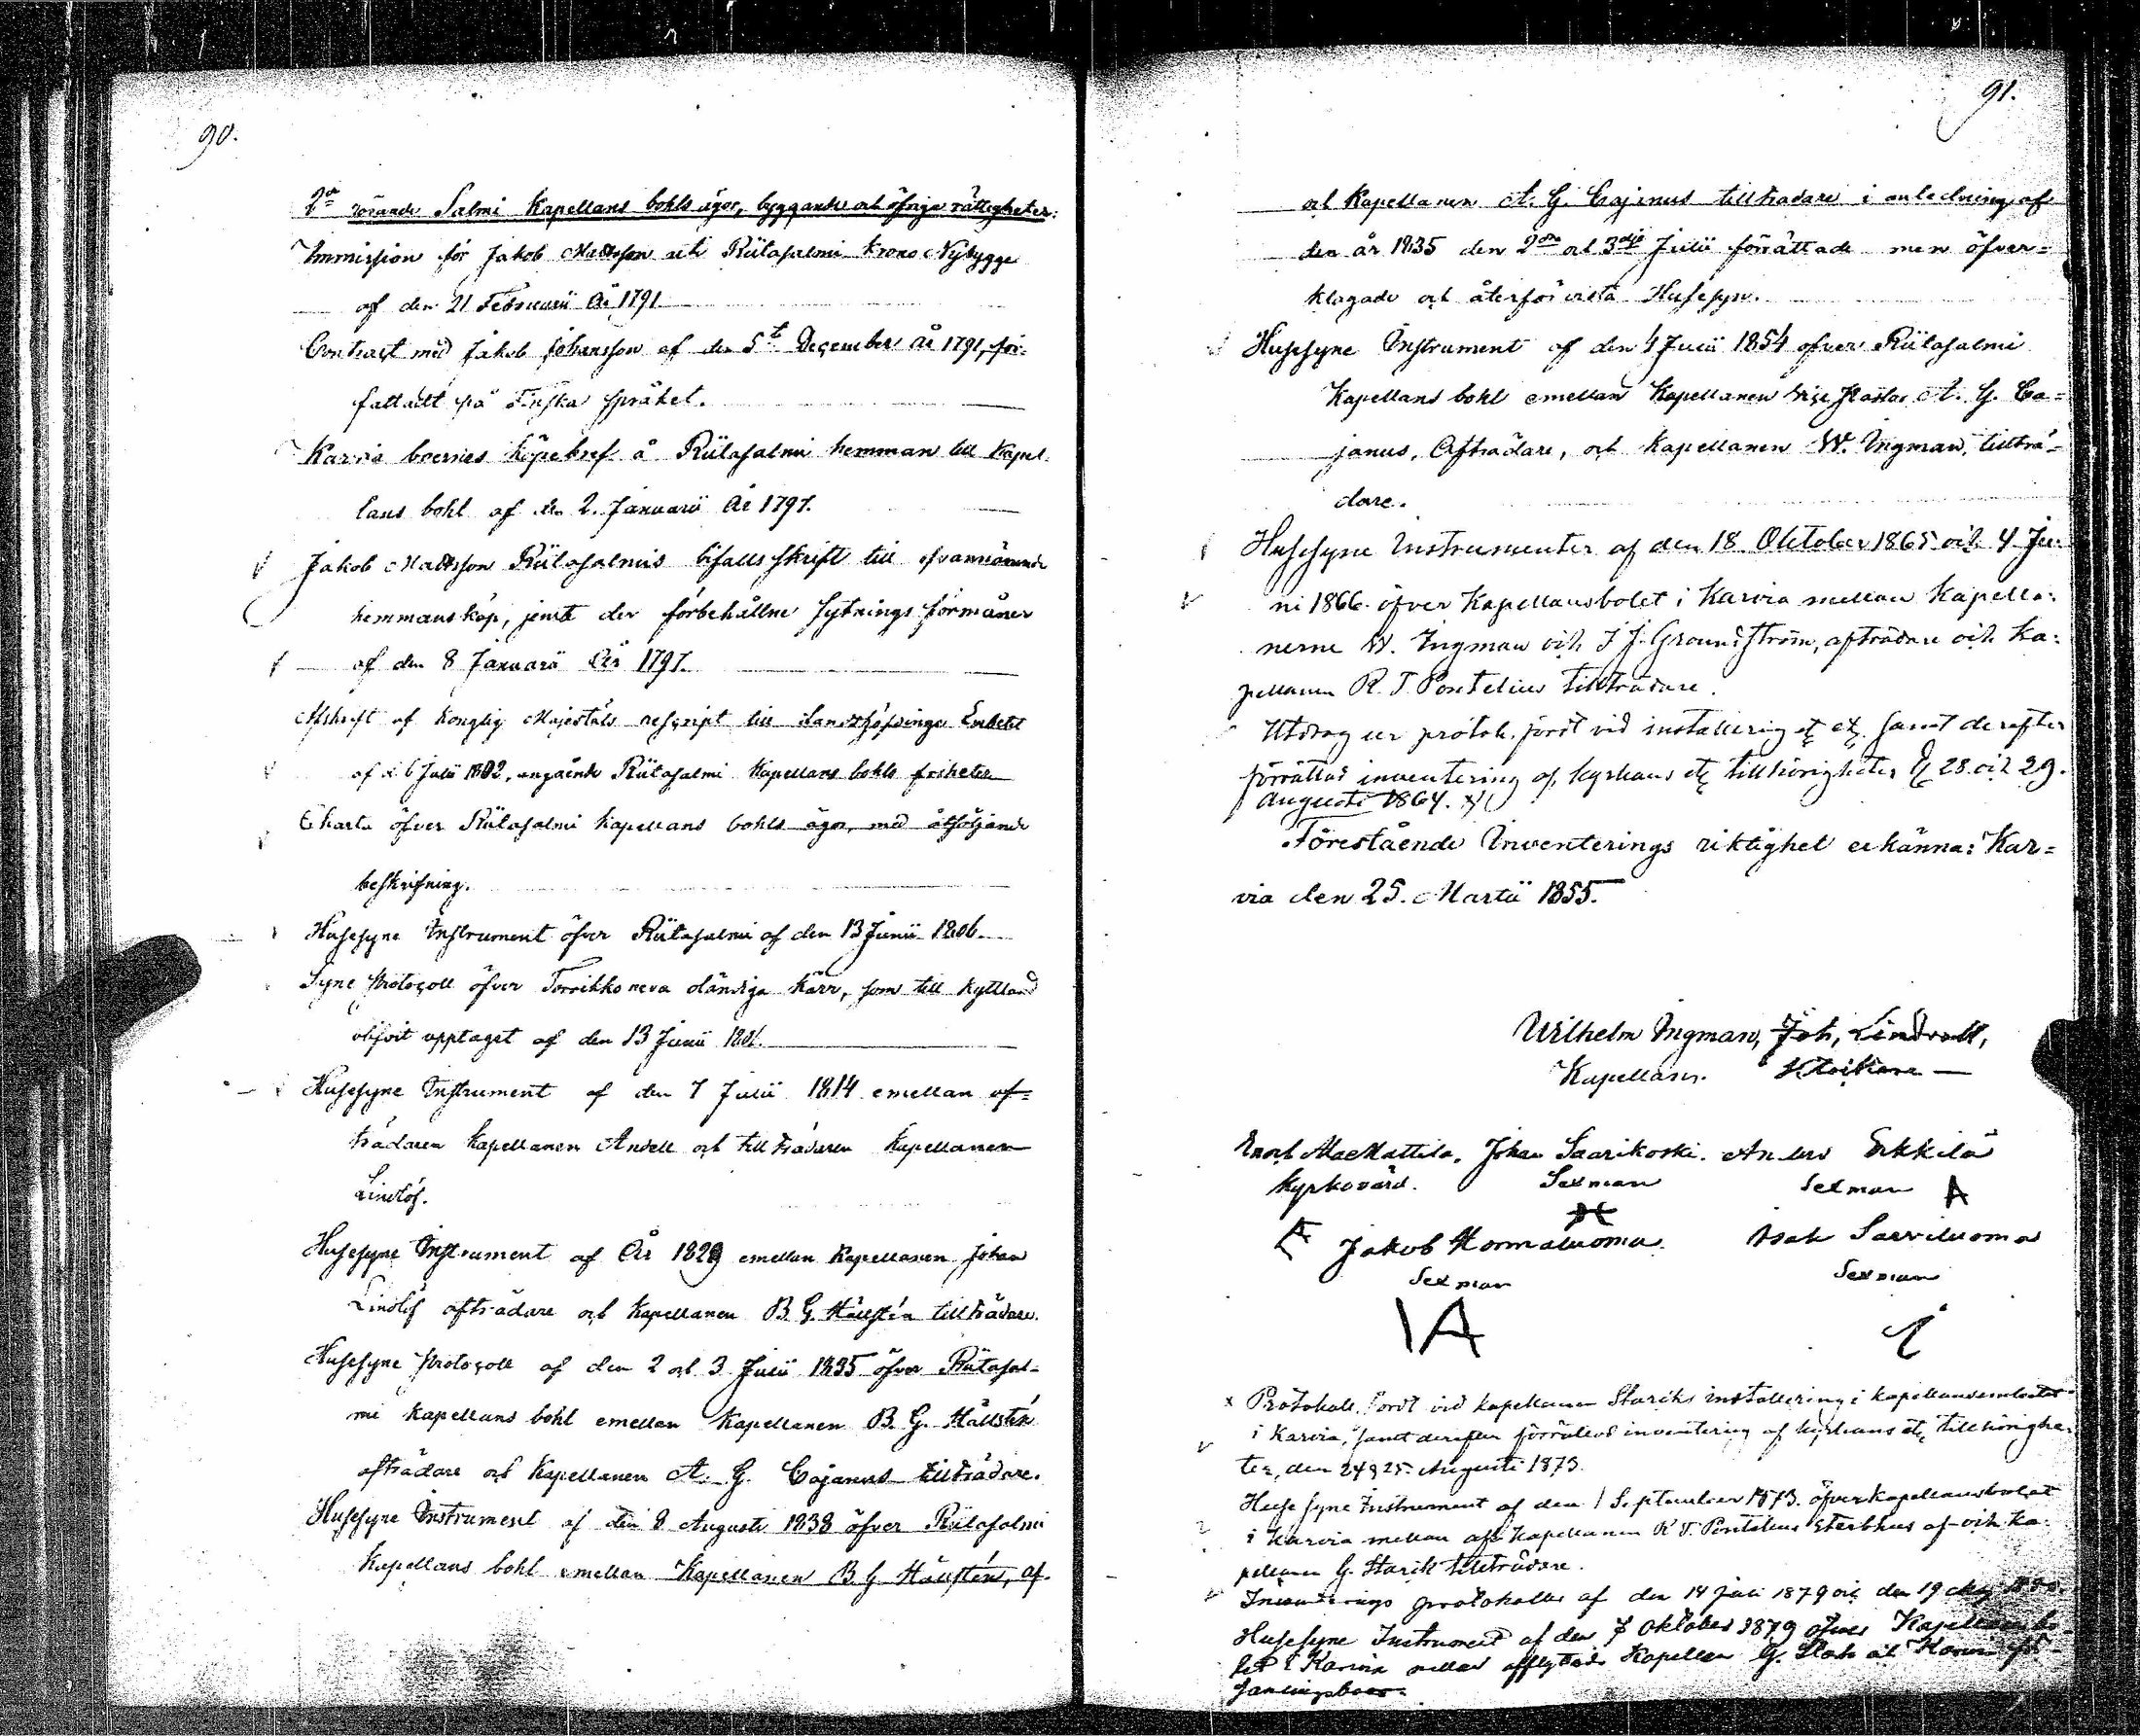 90.
2do rörande Salmi Kapellans bohls ägor, byggande och öfriga rättigheter:
Immission för Jakob Mattsson uti Riitasalmi Krono Nybygge
af den 21 Februarii År 1791
Contract med Jakob Johansson af den 5t December År 1791, för-
fattadt på Finska språket.
Karvia boernes köpebref å Riitasalmi hemman till Kapel
lans bohl af den 2. Januarii År 1797.
Jakob Mattsson Riitasalmis bifalls skrift till ofvannämnde
hemmansköp, jemte der förbehållne sytnings förmåner
af den 8 Januarii År 1797.
Afskrift af Konglig Majestäts rescript till Landshöfdinge Embetet
af d. 6 Julii 1802, angående Riitasalmi Kapellans bohls friheter
Charta öfver Riitasalmi Kapellans bohls ägor, med åtföljande
beskrifning.
Husesyne Instrument öfver Riitasalmi af den 13 Junii 1806.
Syne Protocoll öfver Torrikkoneva oländiga kärr, som till kyttland
blifvit upptaget af den 13 Junii
Husesyne Instrument af den 7 Julii 1814 emellan af-
trädaren Kapellanen Andell och tillträdaren Kapellanen
Lindlöf.
Husesyne Instrument af År 1829 emellan Kapellanen Johan
Lindlöf afträdare och Kapellanen B. G. Hällstén tillträdare.
Husesyne Protocoll af den 2 och 3 Julii 1835 öfver Riitasal-
mi Kapellans bohl emellan Kapellanen B. G. Hällstén
afträdare och Kapellanen A. G. Cajanus tillträdare.
Husesyne Instrument af den 8 Augusti 1838 öfver Riitasalmi
Kapellans bohl emellan Kapellanen B. G. Hällstén, af-
91.
och Kapellanen A. G. Cajanus tillträdare i anledning af
den år 1835 den 2dra och 3dje Julii förrättade men öfver-
klagade och återförvista Husesyn.
Husesyne Instrument af den 4 Julii 1854 öfver Riitasalmi
Kapellans bohl emellan Kapellanen Vice Pastor A. G. Ca-
janus, Afträdare, och Kapellanen W. Ingman, tillträ-
dare.
Husesyne Instrumenter af den 18 Oktober 1865 och 4 Ju-
ni 1866 öfver Kapellansbolet i Karvia mellan Kapella-
nerne W. Ingman och J. J. Groundstroem, afträdare och Ka-
pellanen R. T. Pontelius tillträdare.
Utdrag ur protok. fördt vid installering etc etc. samt derefter
förrättad inventering af kyrkans etc tillhörigheter d. 28 och 29.
Augusti 1864. x/
Förestående Inventerings riktighet erkänna: Kar-
via den 25. Martii 1855.
Wilhelm Ingman, Joh. Lindvall,
Kapellan. Klockare
Enoch AlaMattila. Johan Saarikoski. Anders Erkkilä
Kyrkovärd. Sexman Sexman A
Jakob Hormaluoma. Isak Sarviluoma
Sexman Sexman
IA
x Protokoll, fördt vid kapellanen Starcks installering i kapellansembetet
i Karvia, samt derefter förrättad inventering af kyrkans etc tillhörighe-
ter, den 24 & 25 Augusti 1873.
Husesyne Instrument af den 1 September 1873. öfver kapellansbolet
i Karvia mellan afl. kapellanen R. T. Pontelius sterbhus af- och ka-
pellanen G. Starck tillträdare.
Inventerings protokoller af den 14 juli 1879 och den 19 maj
Husesyne Instrument af den 7 Oktober 1879 öfver Kapellansbo-
let i Karvia mellan afflyttade Kapellan G. Starck och Karvia för-
samlingsboer.